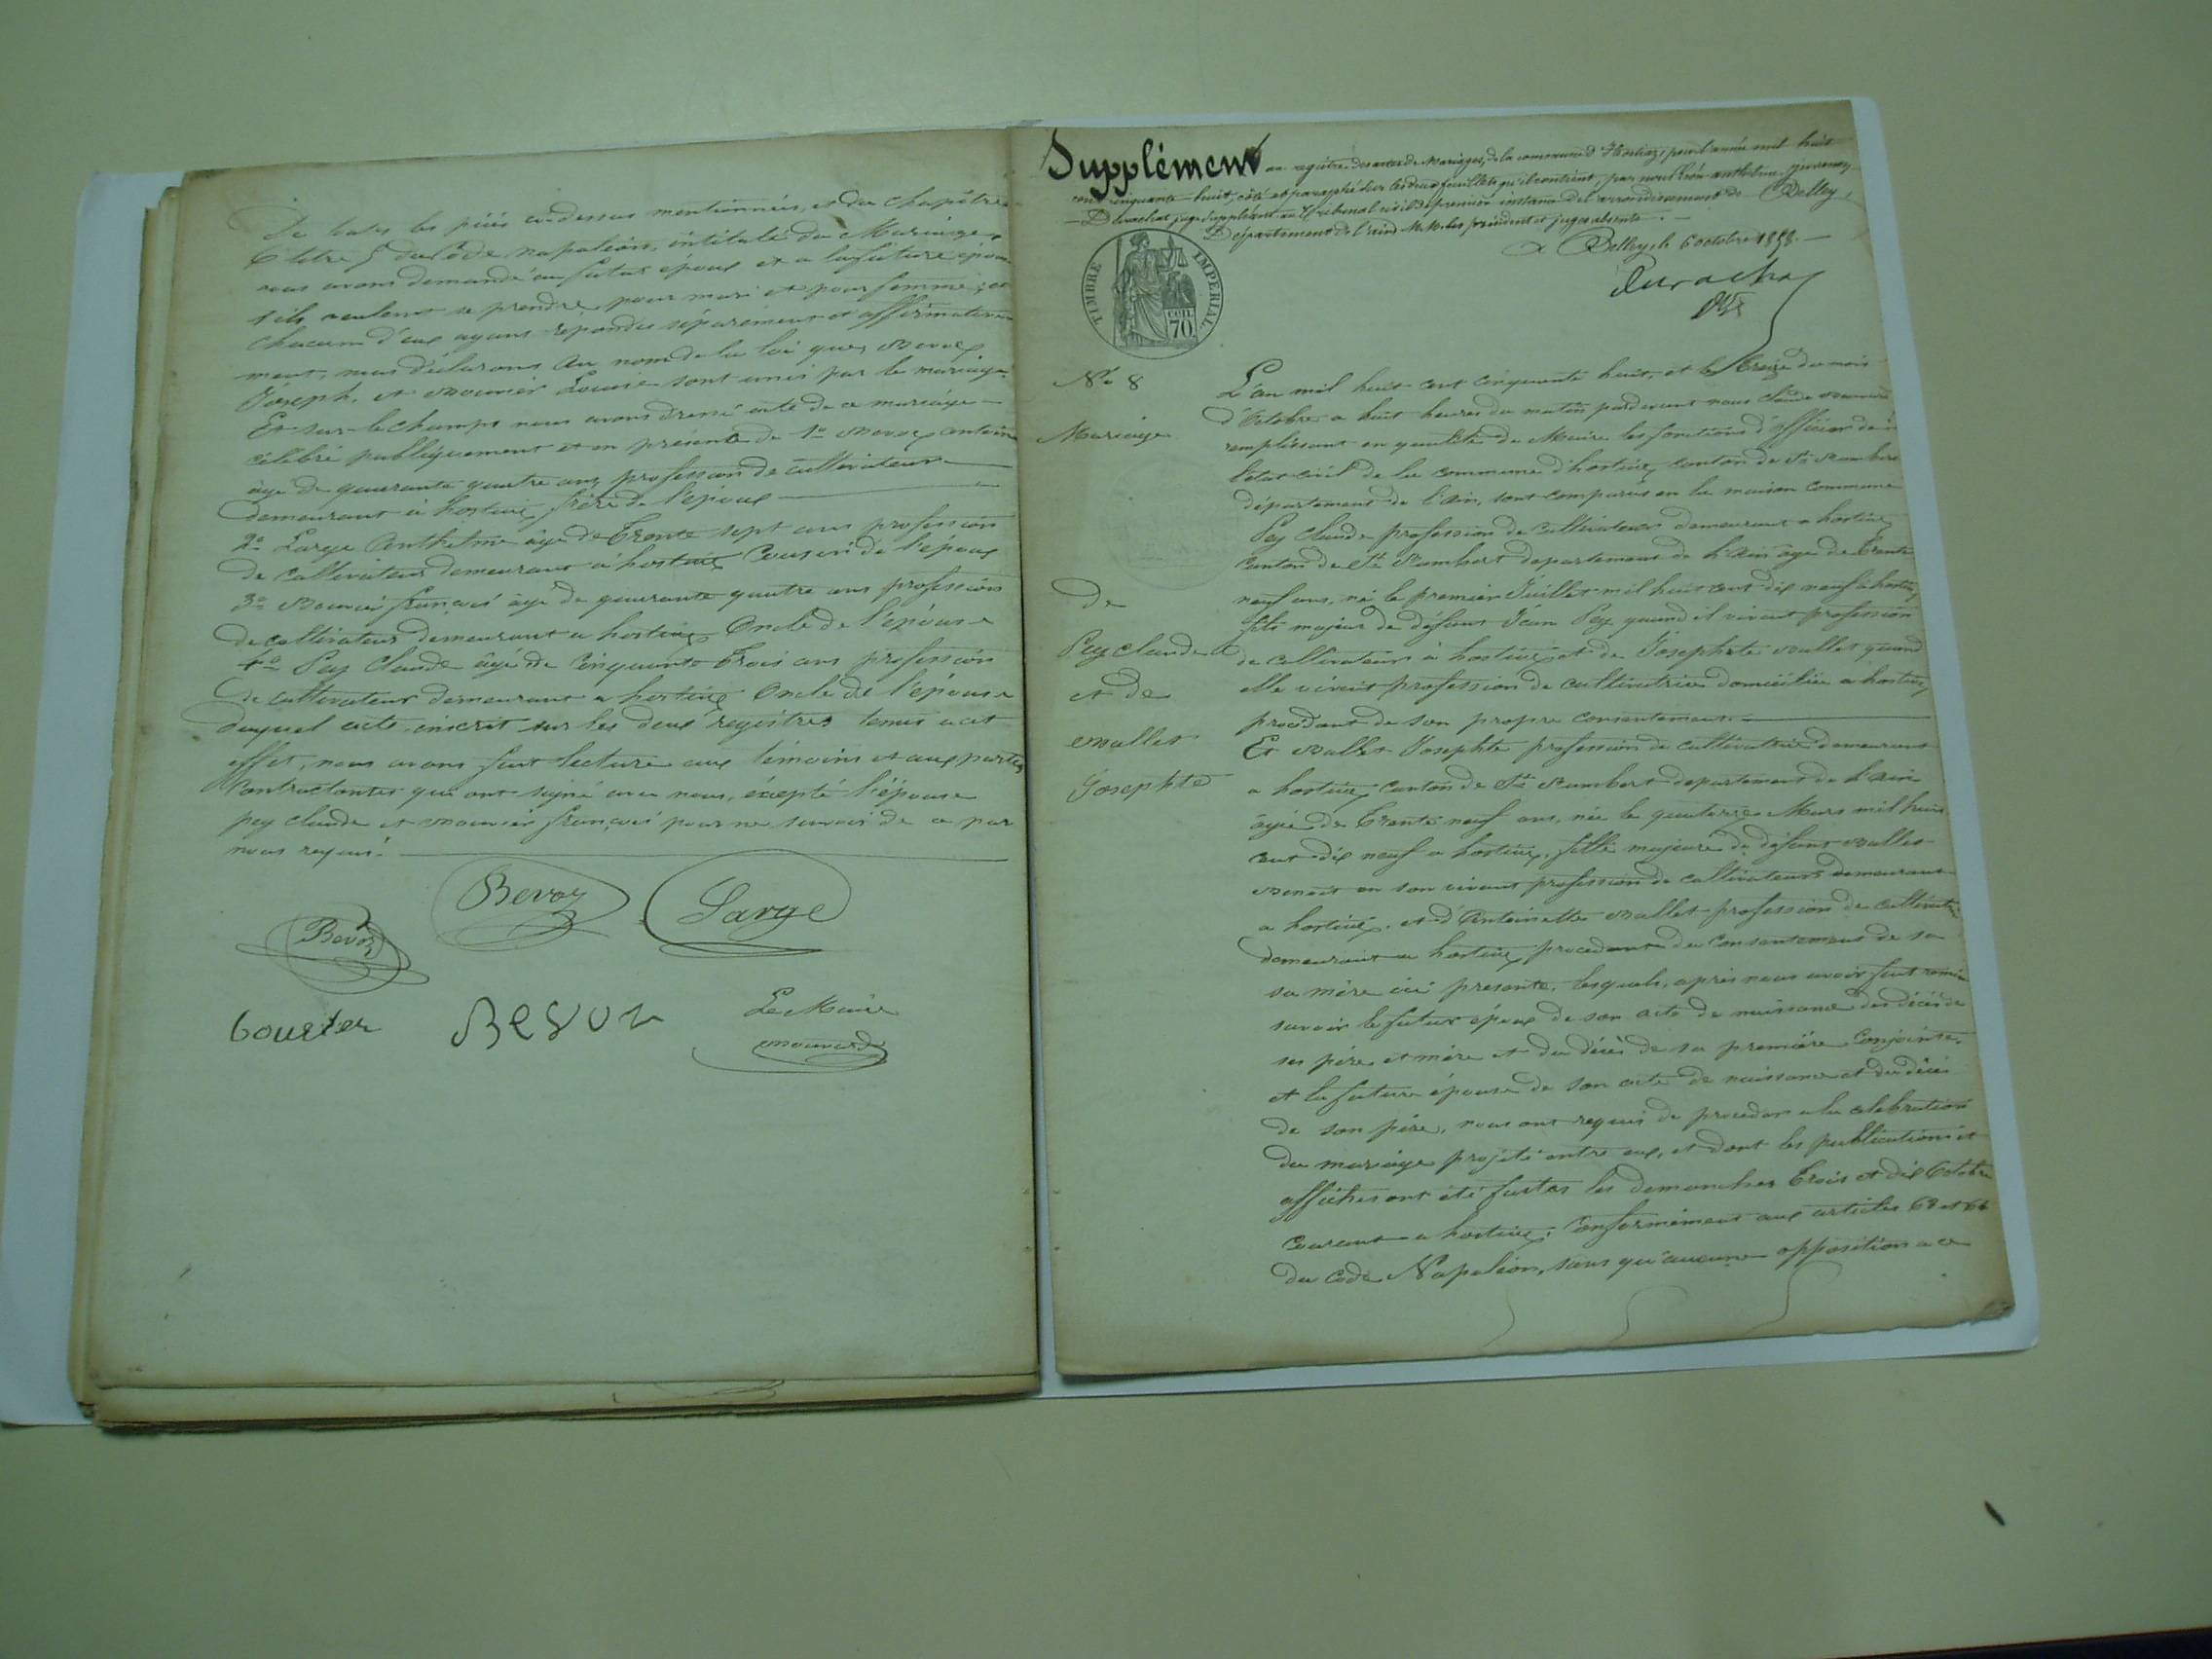 De toutes les pièces ci-dessus mentionnées, et du chapitre
6 titre 5 du Code Napoléon, intitulé du Mariage,
nous avons demandé au futur époux et a la future épouse
s'ils veulent se prendre pour mari et pour femme, et
chacun d'eux ayant repondu séparement et affirmative
ment, nous déclarons au nom de la loi que Bevoz
Joseph, et Mounier Louise sont unis par le mariage.
Et sur-le-champs nous avons dressé acte de ce mariage
célébré publiquement et en présence de 1º Bevoz antoine
âgé de quarante quatre ans, profession de cultivateur
demeurant à hostiaz, frère de l'époux
2º Large Anthelme âgé de Trente sept ans profession
de cultivateur demeurant à hostiaz Cousin de l'époux
3º Mounier françois âgé de quarante quatre ans profession
de cultivateur demeurant a hostiaz Oncle de l'épouse
4º Pey Claude âgé de Cinquante Trois ans profession
de cultivateur demeurant a hostiaz Oncle de l'épouse
duquel acte, inscrit sur les deux registres tenus a cet
effet, nous avons fait lecture aux témoins et aux parties
Contractantes qui ont signé avec nous, éxcepté l'épouse
pey claude et Mounier françois pour ne savoir de ce par
nous requis.
Bevoz Large
Bevoz
Le Maire
BEVOZ
Supplément au registre des actes de Mariages, de la commune d'Hostiaz, pour l'année mil huit
cent cinquante-huit, côté et paraphé sur les deux feuillets qu'il contient, par nous Léon anthelme
Durochat, juge suppléant au Tribunal civil de première instance de l'arrondissement de Belley,
Département de l'ain, M.M. les président et juges absents.
A Belley, le 6 octobre 1858.
Durochat
TIMBRE IMPERIAL
70
Nº 8
Mariage
de
Pey claude
et de
Mallet
Josephte
L'an mil huit cent cinquante huit, et le Treize du mois
d'Octobre a huit heures du matin pardevant nous Claude
remplissant en qualité de Maire les fonctions d'officier de
l'état-civil de la commune d'hostiaz, canton de St Rambert
département de l'Ain, sont comparus en la maison commune
Pey Claude profession de cultivateur demeurant a hostiaz
Canton de St Rambert departement de l'Ain âgé de Trente
neuf ans, né le premier Juillet mil huit cent dix neuf à hostiaz,
fils majeur de défunt Jean Pey quand il vivait profession
de cultivateur à hostiaz et de Josephte Mallet quand
elle vivait profession de cultivatrice domiciliée a hostiaz
procédant de son propre consentement.
Et Mallet Josephte profession de cultivatrice demeurant
a hostiaz, canton de St Rambert departement de l'Ain
âgée de Trente neuf ans, née le quatorze Mars mil huit
cent dix neuf a hostiaz, fille majeure de défunt Mallet
Benoit en son vivant profession de cultivateur demeurant
a hostiaz, et d'Antoinette Mallet profession de cultivatrice
demeurant a hostiaz procédant du consentement de sa
sa mère ici présente, lesquels, après nous avoir fait remise
savoir le futur époux de son acte de naissance des décès de
ses père et mère et du décès de sa première Conjointe.
et la future épouse de son acte de naissance et du décès
de son père, nous ont requis de procéder a la celebration
du mariage projeté entre eux, et dont les publications et
affiches ont été faites les dimanches trois et dix Octobre
Courant a hostiaz, conformément aux articles 63 et 64
du Code Napoléon, sans qu'aucune opposition a ce